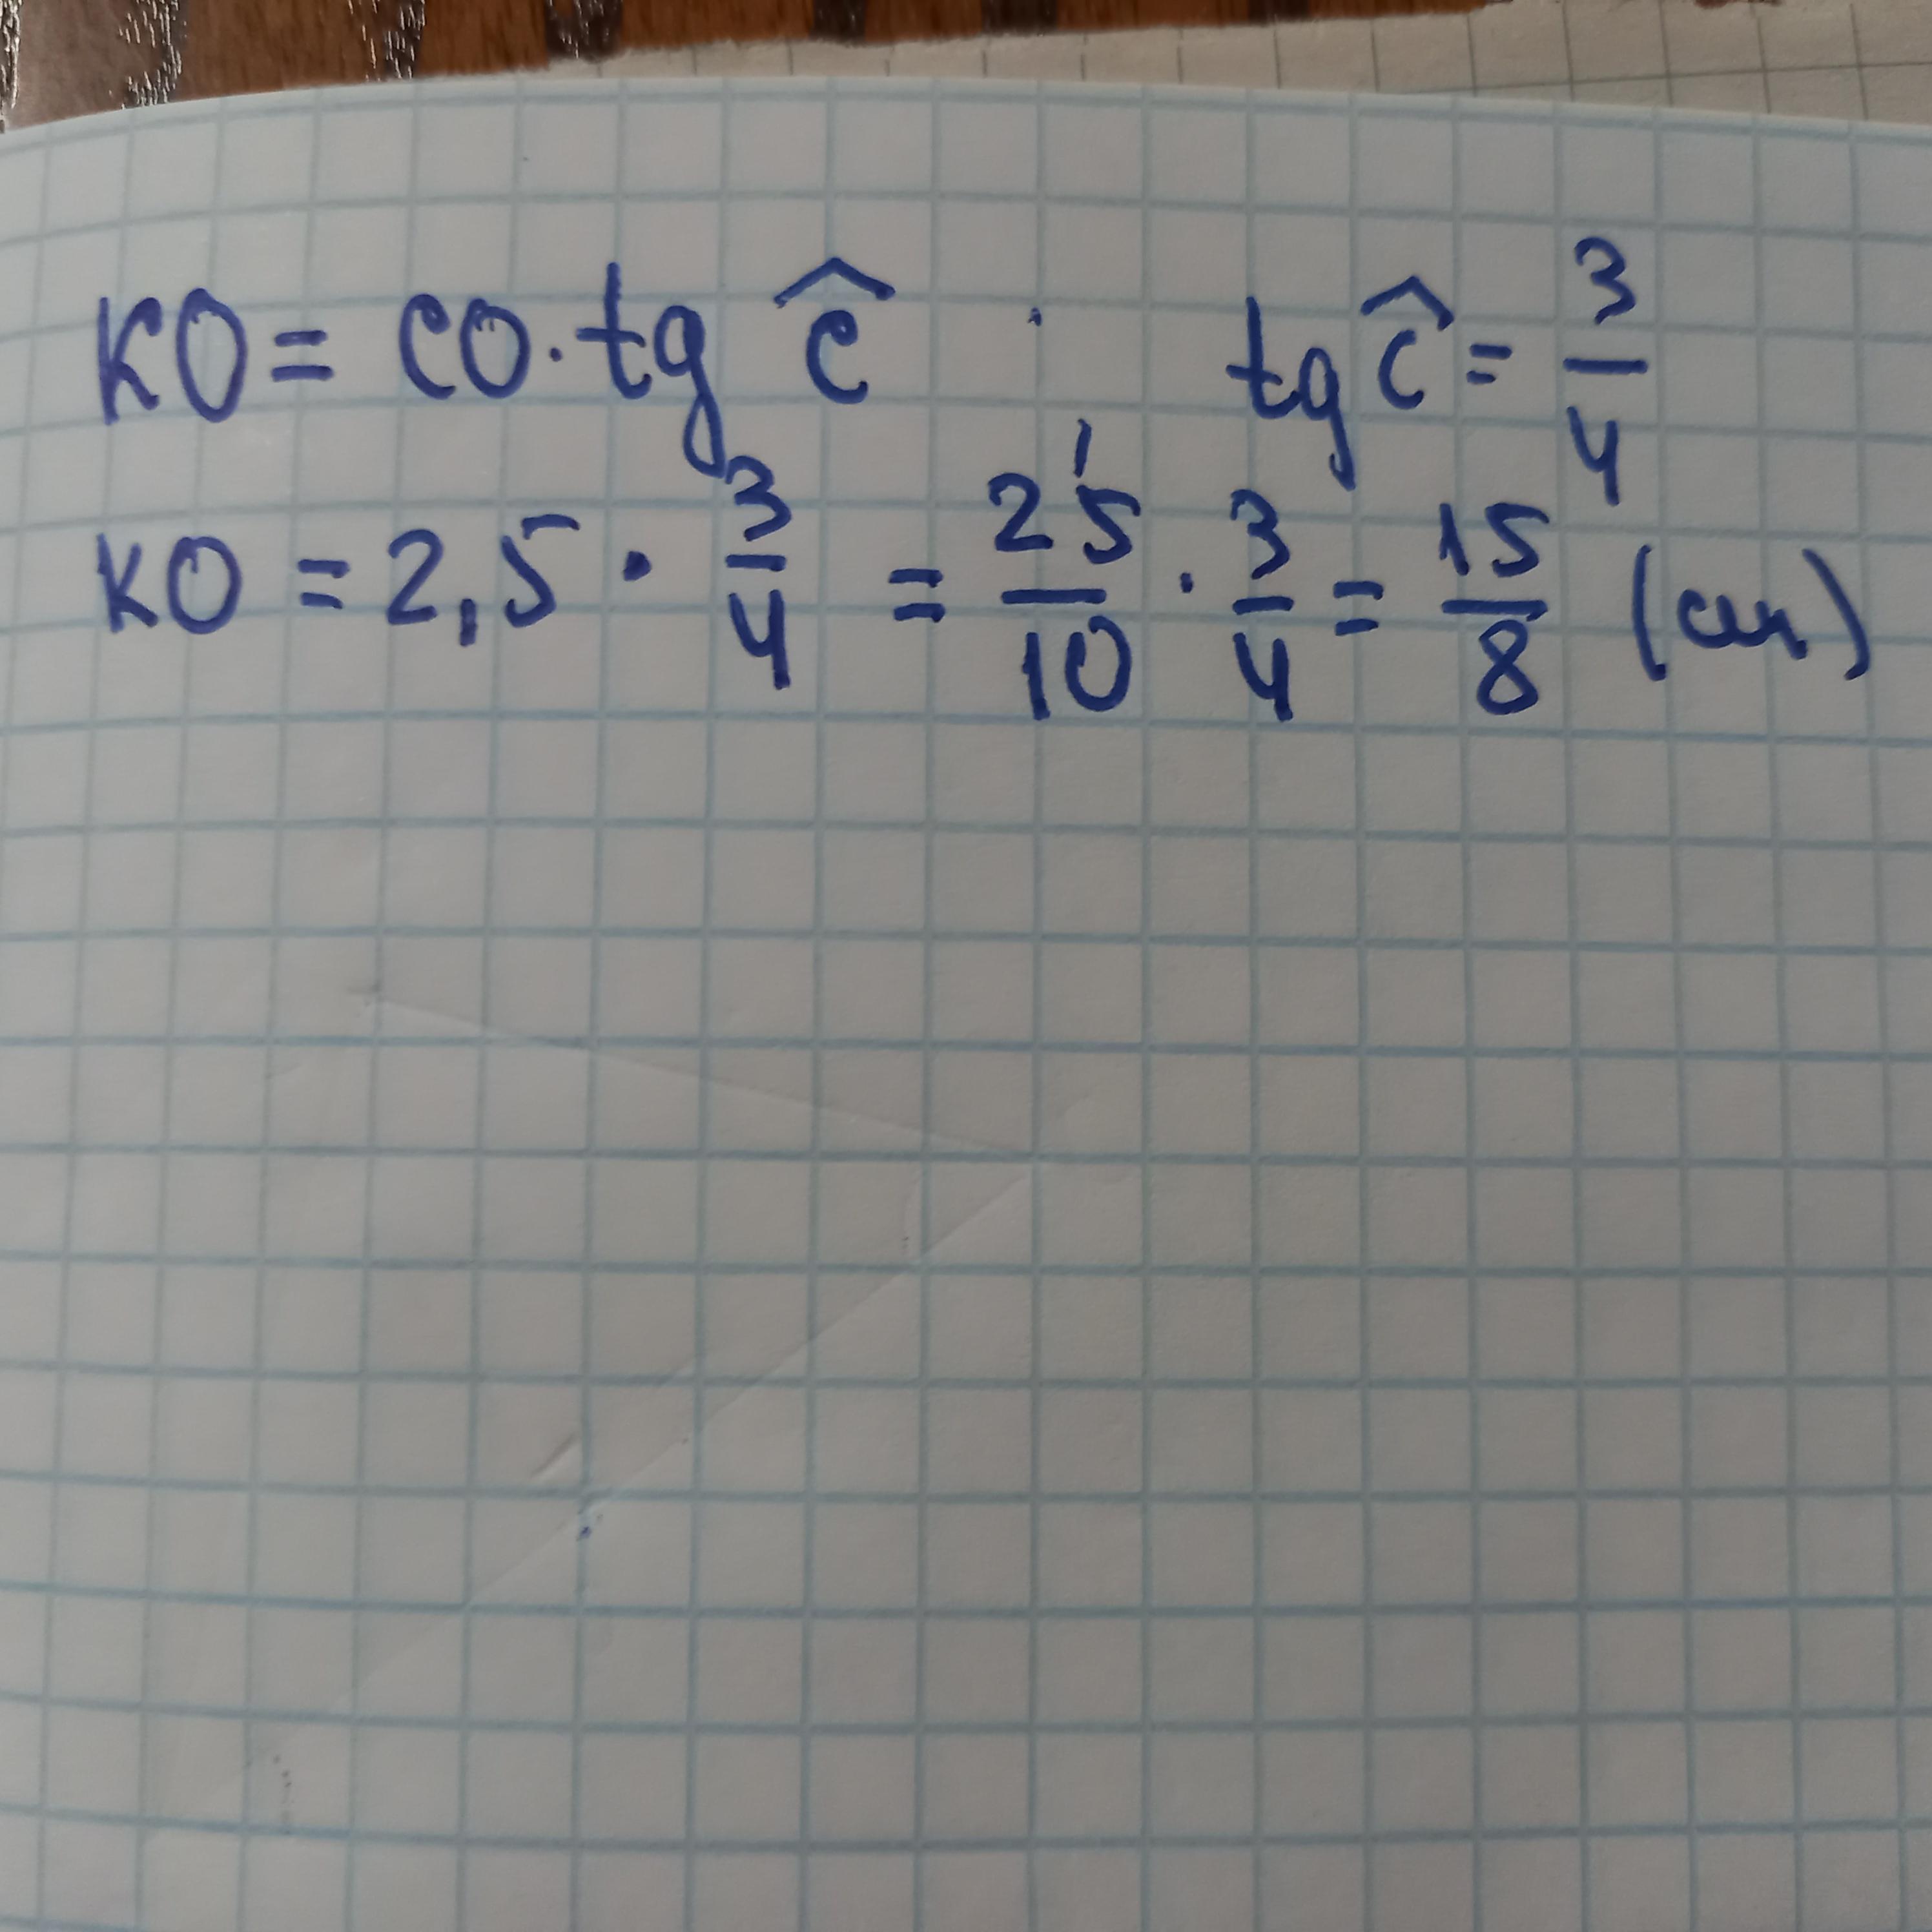 KO = CO · tg Ĉ    tg Ĉ = 3/4
KO = 2,5 · 3/4 = 25/10 · 3/4 = 15/8 (см)